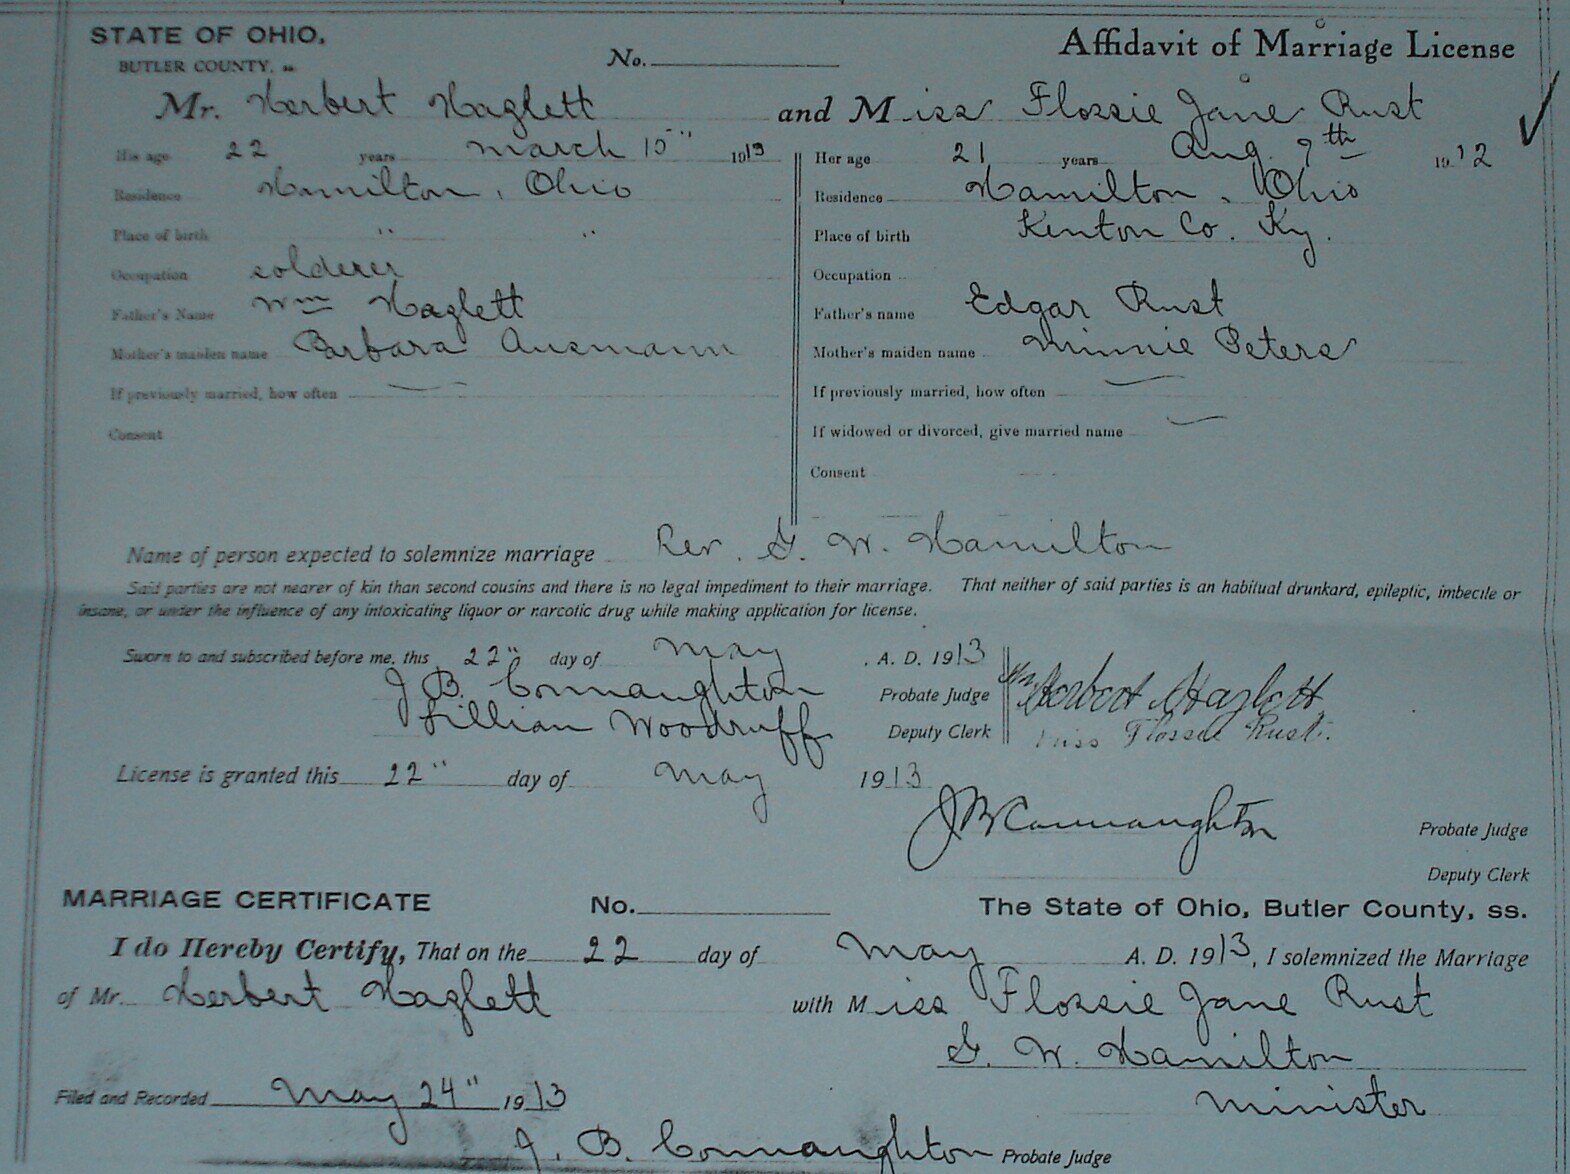 STATE OF OHIO,
BUTLER COUNTY, ss
No.
Affidavit of Marriage License
Mr. Herbert Hazlett and Miss Flossie Jane Rust
His age 22 years March 15" 1913
Her age 21 years Aug. 9th 1912
Residence Hamilton, Ohio
Residence Hamilton, Ohio
Place of birth " "
Place of birth Kenton Co. Ky.
Occupation solderer
Occupation
Father's Name Wm Hazlett
Father's name Edgar Rust
Mother's maiden name Barbara Ausmann
Mother's maiden name Minnie Peters
If previously married, how often —
If previously married, how often —
Consent
If widowed or divorced, give married name —
Consent
Name of person expected to solemnize marriage Rev. G. W. Hamilton
Said parties are not nearer of kin than second cousins and there is no legal impediment to their marriage. That neither of said parties is an habitual drunkard, epileptic, imbecile or
insane, or under the influence of any intoxicating liquor or narcotic drug while making application for license.
Sworn to and subscribed before me, this 22" day of May A. D. 1913
J. B. Connaughton Probate Judge Herbert Hazlett
Lillian Woodruff Deputy Clerk Miss Flossie Rust.
License is granted this 22" day of May 1913
J B Connaughton Probate Judge
Deputy Clerk
MARRIAGE CERTIFICATE No. The State of Ohio, Butler County, ss.
I do Hereby Certify, That on the 22 day of May A. D. 1913, I solemnized the Marriage
of Mr. Herbert Hazlett with Miss Flossie Jane Rust
G. W. Hamilton
Filed and Recorded May 24" 1913 Minister
J. B. Connaughton Probate Judge